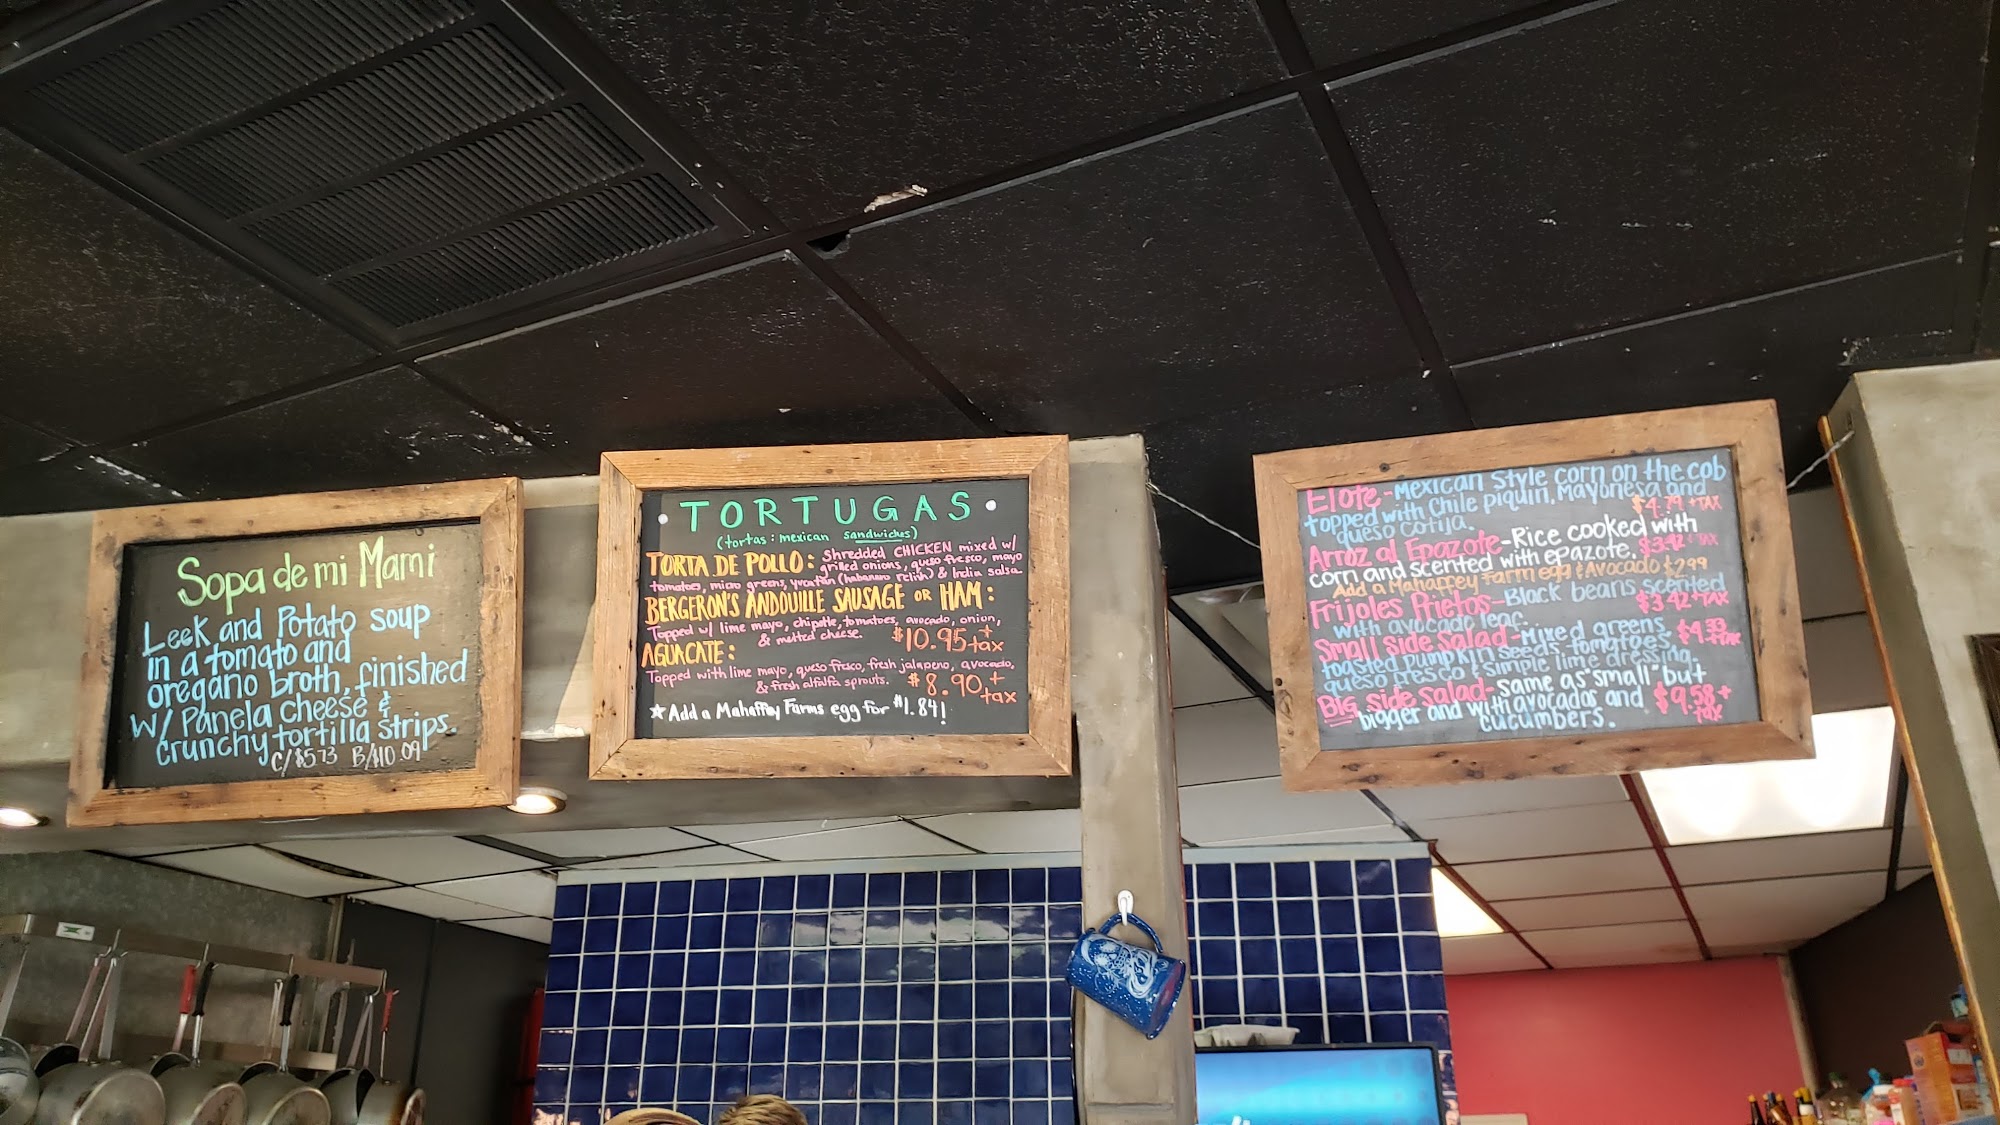 Sopa de mi Mami
Leek and Potato soup
in a tomato and
oregano broth, finished
w/ Panela cheese &
crunchy tortilla strips.
C/$5.73 B/$10.09
• TORTUGAS •
(tortas: mexican sandwiches)
TORTA DE POLLO: shredded CHICKEN mixed w/
grilled onions, queso fresco, mayo
tomatoes, micro greens, yucatan (habanero relish) & India salsa
BERGERON'S ANDOUILLE SAUSAGE OR HAM:
Topped w/ lime mayo, chipotle, tomatoes, avocado, onion,
& melted cheese. $10.95 + tax
AGUACATE:
Topped with lime mayo, queso fresco, fresh jalapeno, avocado,
& fresh alfalfa sprouts. $8.90 + tax
★ Add a Mahaffey Farms egg for $1.84!
Elote - Mexican Style corn on the cob
topped with Chile piquin, Mayonesa and
queso cotija. $4.79 + TAX
Arroz al Epazote - Rice cooked with
corn and scented with epazote. $3.42 + TAX
Add a Mahaffey Farm egg & Avocado $2.99
Frijoles Prietos - Black beans scented
with avocado leaf. $3.42 + TAX
Small side Salad - Mixed greens,
toasted pumpkin seeds - tomatoes, $4.33 + TAX
queso fresco & simple lime dressing.
Big side Salad - same as "small" but
bigger and with avocados and $9.58 + TAX
cucumbers.